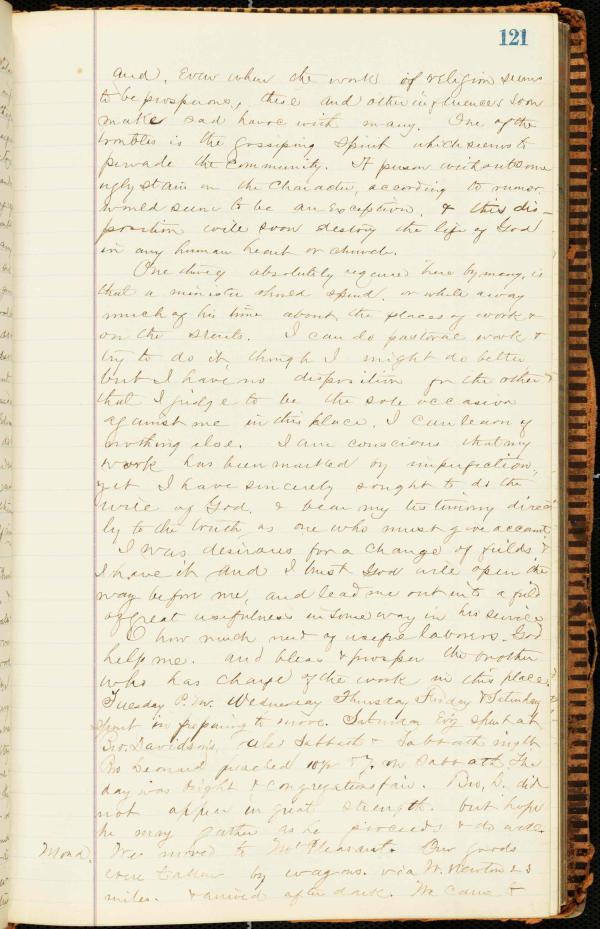 121
and, Even when the work of religion seems
to be prosperous, these and other influences soon
make sad havoc with many. One of the
troubles is the gossiping spirit which seems to
pervade the community. A person without some
ugly stain on the character, according to rumor,
would seem to be an exception, & this dis-
position will soon destroy the life of God
in any human heart or church.
One thing absolutely required here by many, is
that a minister should spend, or while away
much of his time about the places of work &
on the streets. I can do pastoral work &
try to do it, though I might do better
but I have no disposition for the other &
that I judge to be the sole occasion
against me in this place. I can learn of
nothing else. I am conscious that my
work has been marked by imperfection,
yet I have sincerely sought to do the
will of God, & bear my testimony direct
ly to the truth as one who must give account.
I was desirous for a change of fields &
I have it and I trust God will open the
way before me, and lead me out into a field
of great usefulness in some way in his service
O how much need of useful laborers. God
help me. and bless & prosper the brother
who has charge of the work in this place.
Tuesday P.M. Wednesday Thursday Friday & Saturday
spent in preparing to move. Saturday Evg spent at
Bro. Davidson's, also Sabbath & Sabbath night
Bro Leonard preached 10½ & 7, on Sabbath. The
day was bright & congregations fair. Bro, L. did
not appear in great strength. but hope
he may gather as he proceeds & do well.
Mond. We moved to Mt Pleasant. Our goods
were taken by wagons. via W. Newton 23
miles. & arrived after dark. We came &